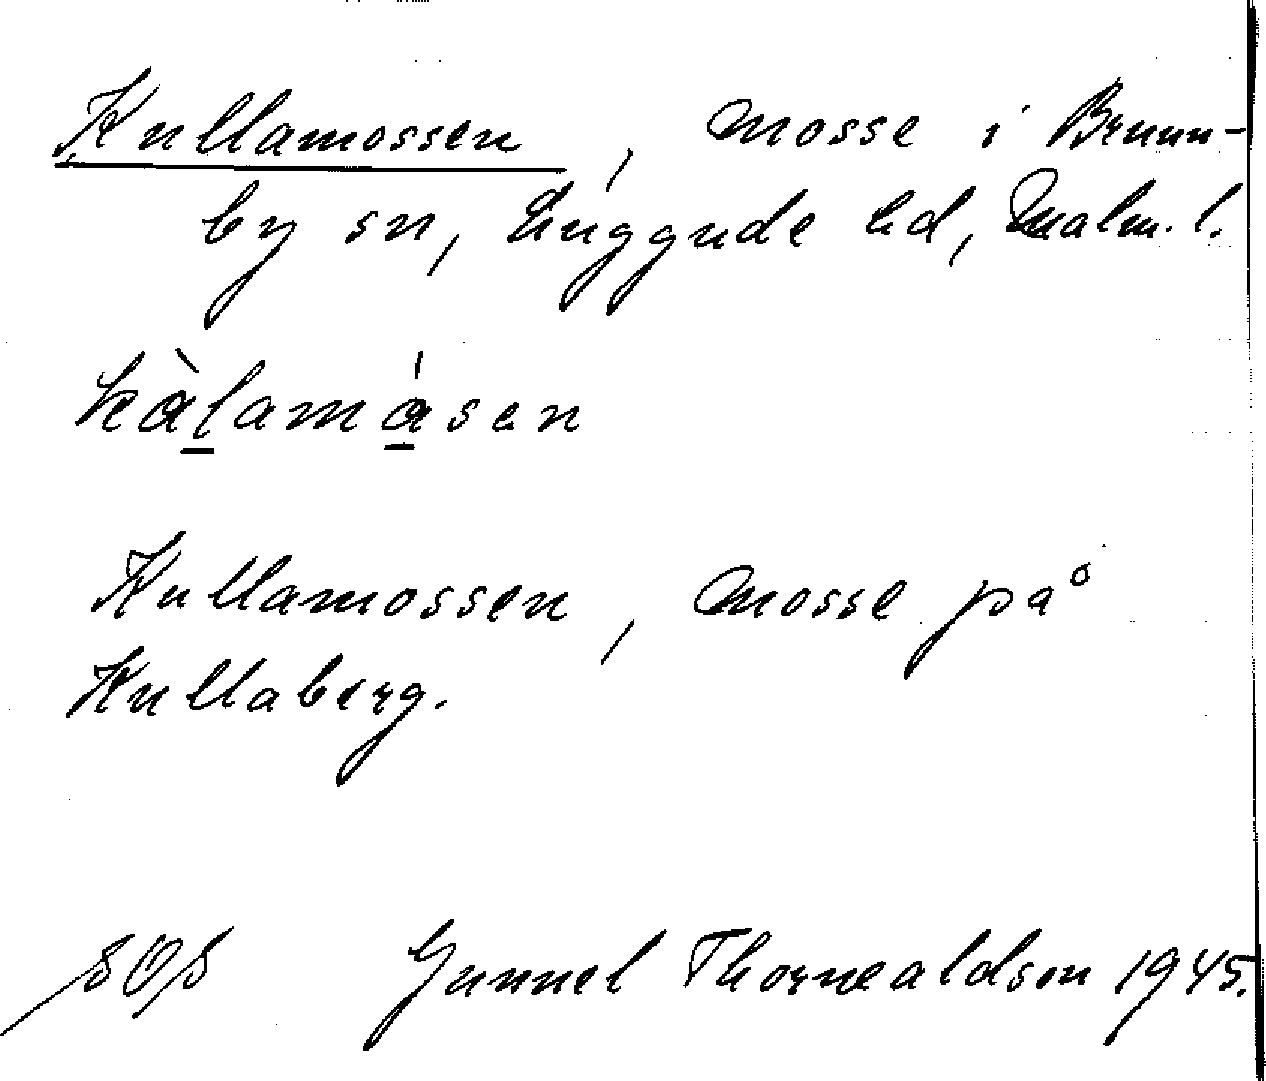 Kullamossen, mosse i Brunn-
by sn, Luggude hd, Malm. l.
kàlamåsen
Kullamossen, mosse på
Kullaberg.
Gunnel Thornealdson 1945.